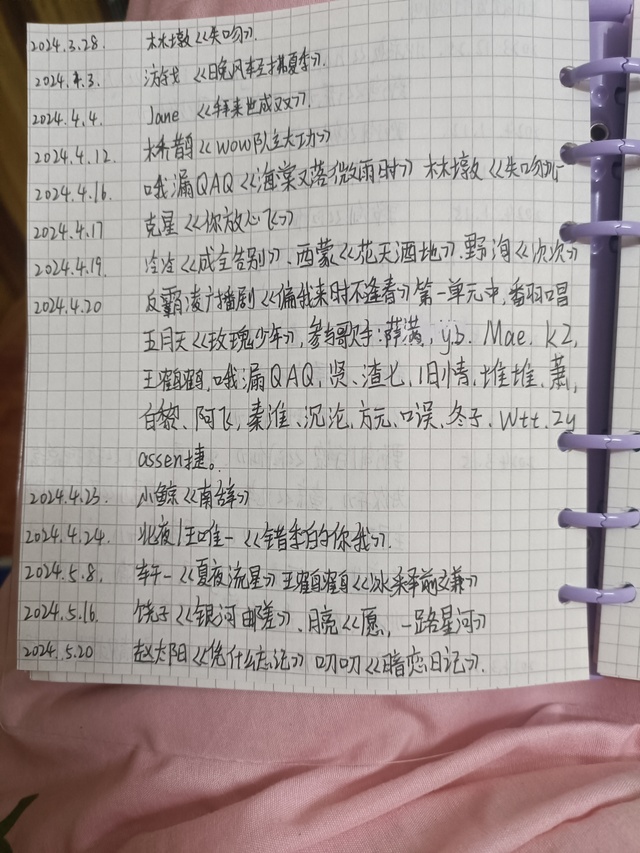 2024.3.28. 林墩《失吻》.
2024.4.3. 《晚风轻拂夏季》.
2024.4.4. Jane 《拜来世成双》.
2024.4.12. 木希鹊《WOW队主大功》
2024.4.16. 哦漏QAQ《海棠又落微雨时》 林墩《失吻
2024.4.17 克星《你放心飞》
2024.4.19. 冷冷《成全告别》、西蒙《花天酒地》.野洵《次次》
2024.4.20 反霸凌广播剧《偏我来时不逢春》第一单元中,番羽唱
五月天《玫瑰少年》,参与歌手:萨满, y.b. Mae. K2,
王雀雀,哦漏QAQ, 贤、渣七, 旧情, 堆堆, 萧,
白黎、阿飞, 秦淮、沉沦, 方元、口误、冬子、Wtt. zy
assen捷。
2024.4.23. 小鲸《南辞》
2024.4.24. 北夜/王唯一《错季的你我》.
2024.5.8. 车干一《夏夜流星》
2024.5.16. 饶子《银河邮差》、月亮《愿,一路星河》
2024.5.20 赵太阳《凭什么忘记》 叨叨《暗恋日记》.